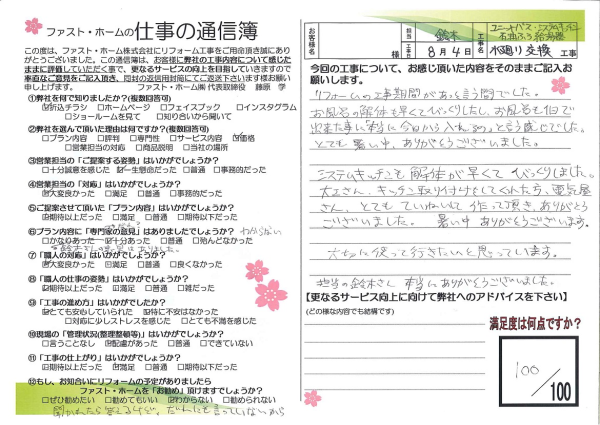 ファスト・ホームの仕事の通信簿
この度は、ファスト・ホーム株式会社にリフォーム工事をご用命頂き誠にあり
がとうございました。この通信簿は、お客様に弊社の工事内容について感じた
ままに評価していただく事で、更なるサービスの向上を目指していきますので
率直なご意見をご記入頂き、同封の返信用封筒にてご返送下さいます様お願い
申し上げます。 ファスト・ホーム㈱ 代表取締役 藤原 学
①弊社を何で知りましたか?(複数回答可)
☑折込チラシ □ホームページ □フェイスブック □インスタグラム
□ショールームを見て □知り合いから聞いて
②弊社を選んで頂いた理由は何ですか?(複数回答可)
□プラン内容 □評判 □専門性 □サービス内容 ☑価格
□営業担当の対応 □商品説明 □当社の場所
③営業担当の「ご提案する姿勢」はいかがでしょうか?
□十分誠意を感じた ☑一生懸命だった □普通 □事務的だった
④営業担当の「対応」はいかがでしょうか?
☑大変良かった □満足 □普通 □事務的だった
⑤ご提案させて頂いた「プラン内容」はいかがでしょうか?
☑期待以上だった □満足 □期待以下だった
⑥プラン内容に「専門家の意見」はありましたでしょうか? わからない
□かなりあった □十分あった □普通 □殆んどなかった
鈴木さんの意見はありました。
⑦「職人の対応」はいかがでしょうか?
☑大変良かった □満足 □普通 □良くなかった
⑧「職人の仕事の姿勢」はいかがでしょうか?
☑期待以上だった □満足 □普通 □雑だった
⑨「工事の進め方」はいかがでしたか?
☑とても安心していられた ☑特に不安はなかった
□対応に少しストレスを感じた □とても不満を感じた
⑩現場の「管理状況(整理整頓等)」はいかがでしょうか?
□言うことなし ☑配慮があった □普通 □できていない
⑪「工事の仕上がり」はいかがでしょうか?
□期待以上だった ☑満足 □普通 □期待以下だった
⑫もし、お知合いにリフォームの予定がありましたら
ファスト・ホームを「お勧め」頂けますでしょうか?
□ぜひ勧めたい □勧めてもいい ☑わからない □勧められない
聞かれたら答えるけど。だれにも言っていないから
お客様名 様
担当 鈴木
工事日 8月4日
工事名 ユニットバス・システムキッチン
石油ふろ給湯器
水廻り交換 工事
今回の工事について、お感じ頂いた内容をそのままご記入お
願いします。
リフォームの工事期間があっと言う間でした。
お風呂の解体も早くてびっくりしたし、お風呂も1日で
出来た事に本当に今日から入れるの?と言う感じでした。
とても暑い中、ありがとうございました。
システムキッチンも解体が早くてびっくりしました。
大工さん、キッチン取り付けをしてくれた方、電気屋
さん、とてもていねいに作って頂き、ありがとう
ございました。暑い中ありがとうございます。
大切に使って行きたいと思っています。
担当の鈴木さん 本当にありがとうございました。
【更なるサービス向上に向けて弊社へのアドバイスを下さい】
(どの様な内容でも結構です)
満足度は何点ですか?
100/100